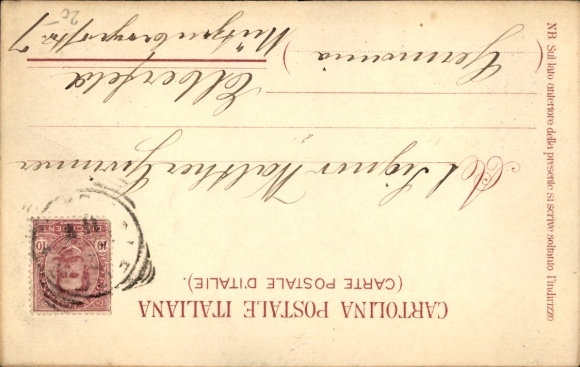 CARTOLINA POSTALE ITALIANA
(CARTE POSTALE D'ITALIE).
Al Signor Walther
Elberfeld
(Germania)
7
NB Sul lato anteriore della presente si scrive soltanto l'indirizzo
10 10
20